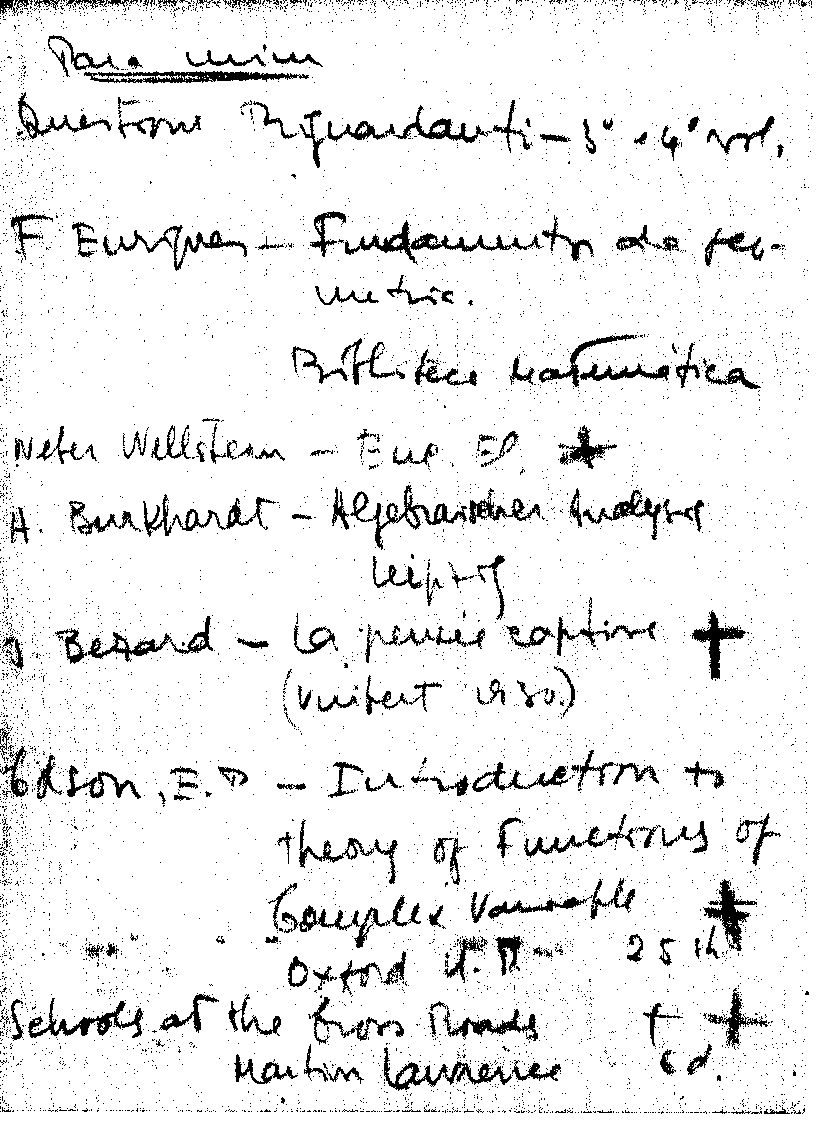 Para mim
Questione Riguardanti – 3º e 4º vol.
F. Enriques – Fundamentos da geo-
metria.
Biblioteca Matemática
Weber Wellstein – Enc. El. +
H. Burkhardt – Algebraischen Analysis
Leipzig
J. Bezard – La pensée captive +
(Vuibert 1930.)
E.D – Introduction to
theory of Functions of
Complex Variable +
Oxford U. P. 25 sh
Schools at the Cross Roads + +
Martin Lawrence 6 d.